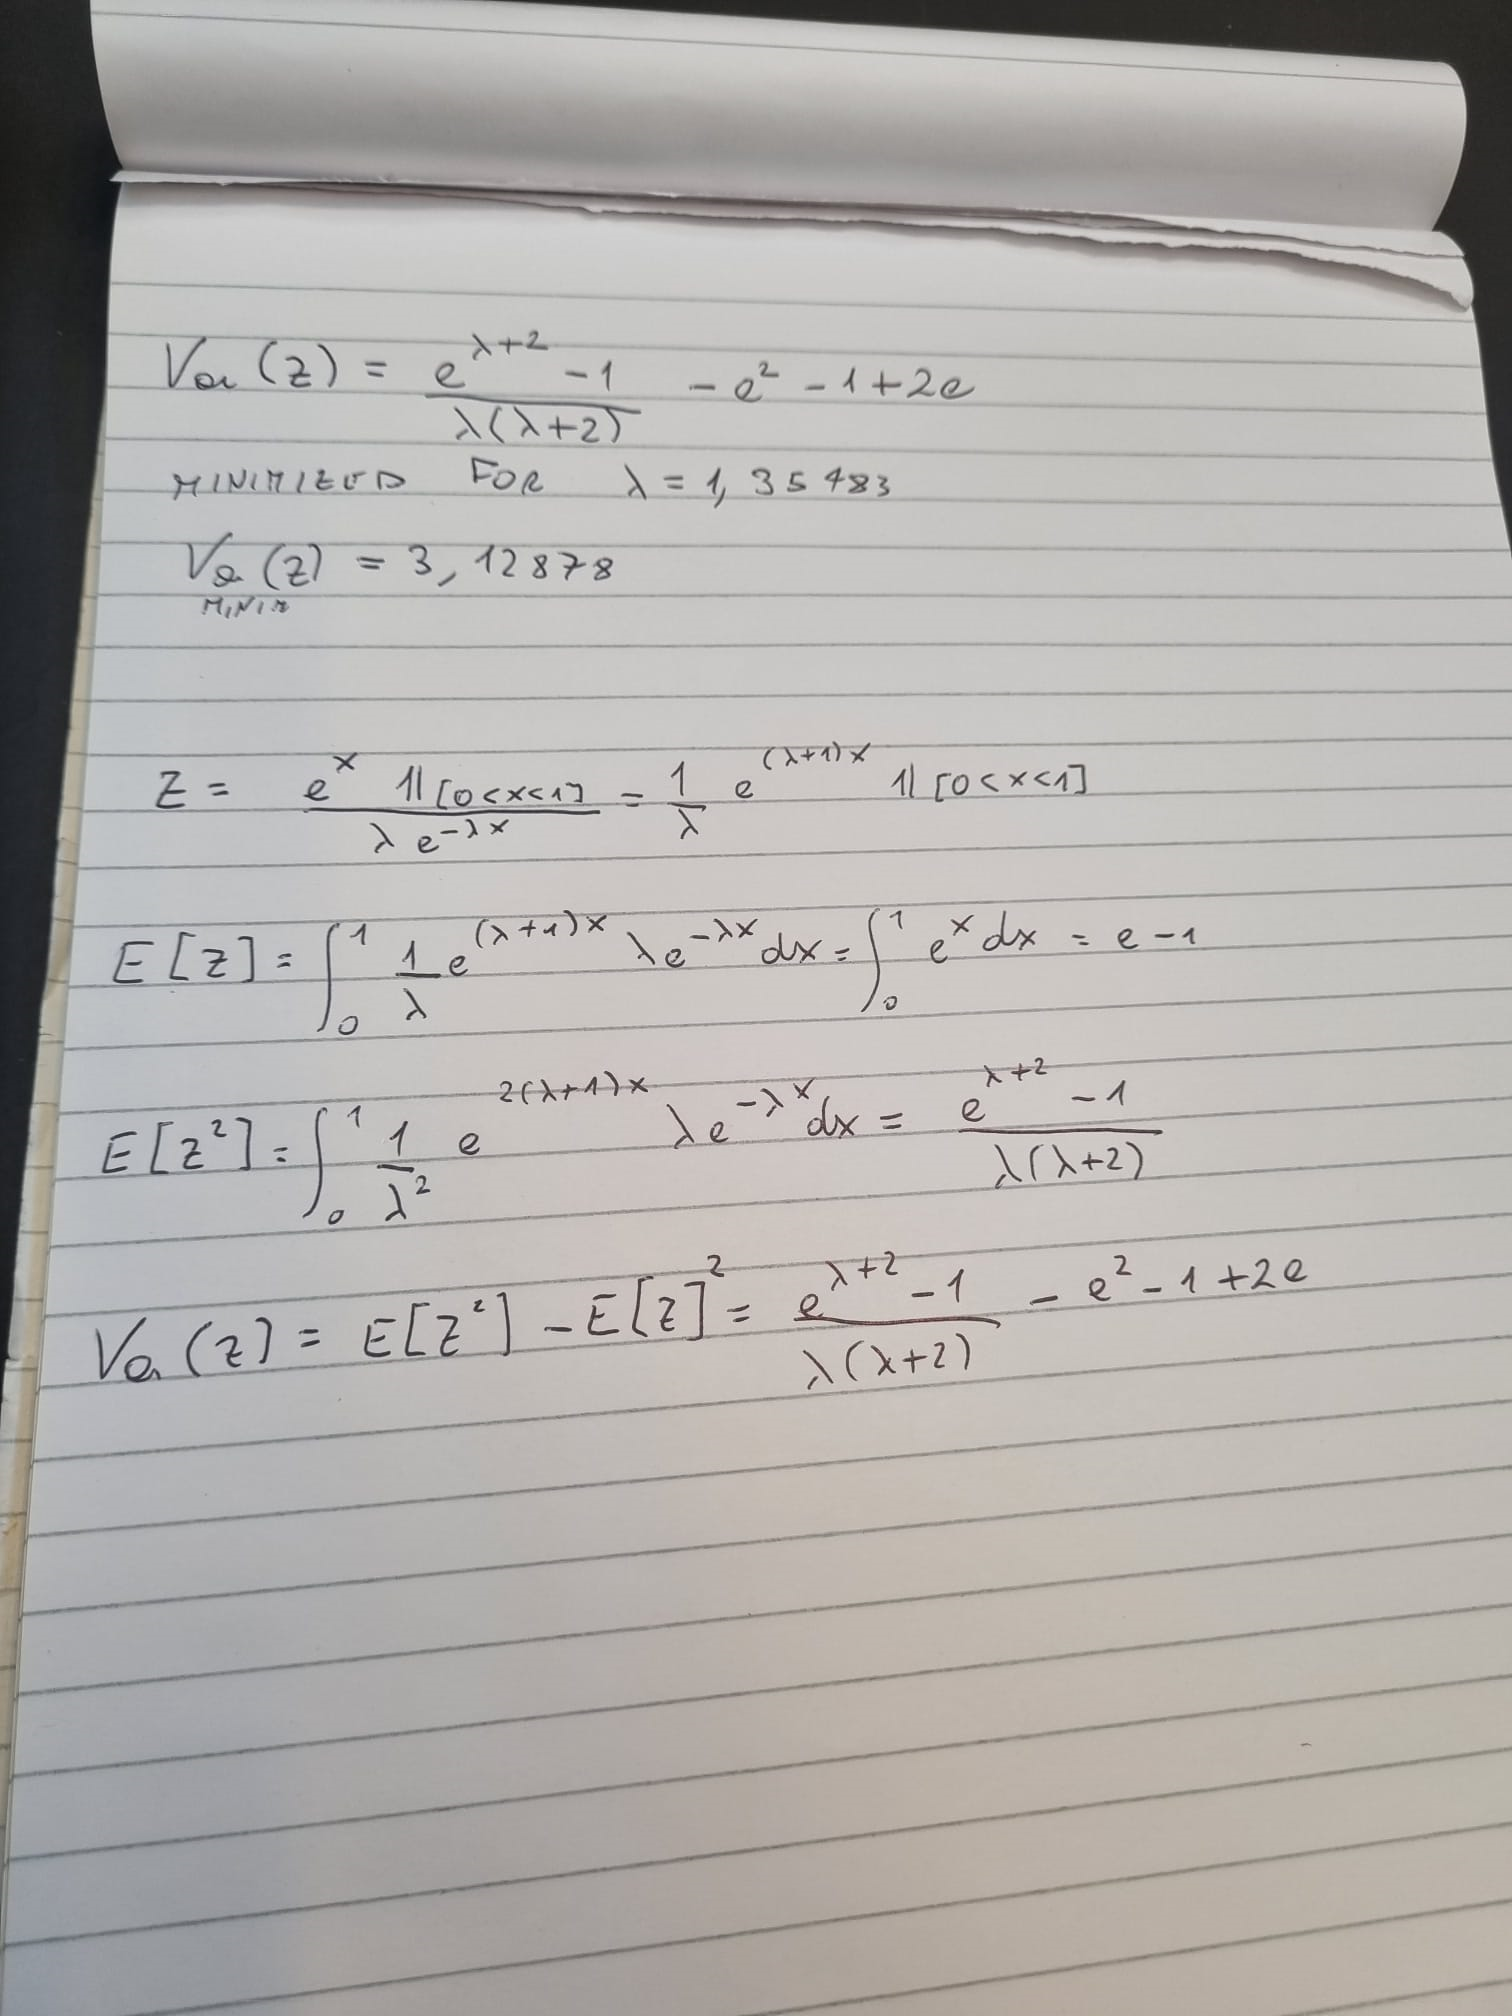 Var (Z) = (e^(λ+2) - 1)/(λ(λ+2)) - e² - 1 + 2e
MINIMIZED FOR λ = 1,35483
Var (Z) = 3,12878
MINIM
Z = (e^x 1l[0<x<1])/(λ e^(-λx)) = 1/λ e^((λ+1)x) 1l[0<x<1]
E[Z] = ∫₀¹ 1/λ e^((λ+1)x) λe^(-λx) dx = ∫₀¹ e^x dx = e-1
E[Z²] = ∫₀¹ 1/λ² e^(2(λ+1)x) λe^(-λx) dx = (e^(λ+2) - 1)/(λ(λ+2))
Var (Z) = E[Z²] - E[Z]² = (e^(λ+2) - 1)/(λ(λ+2)) - e² - 1 + 2e